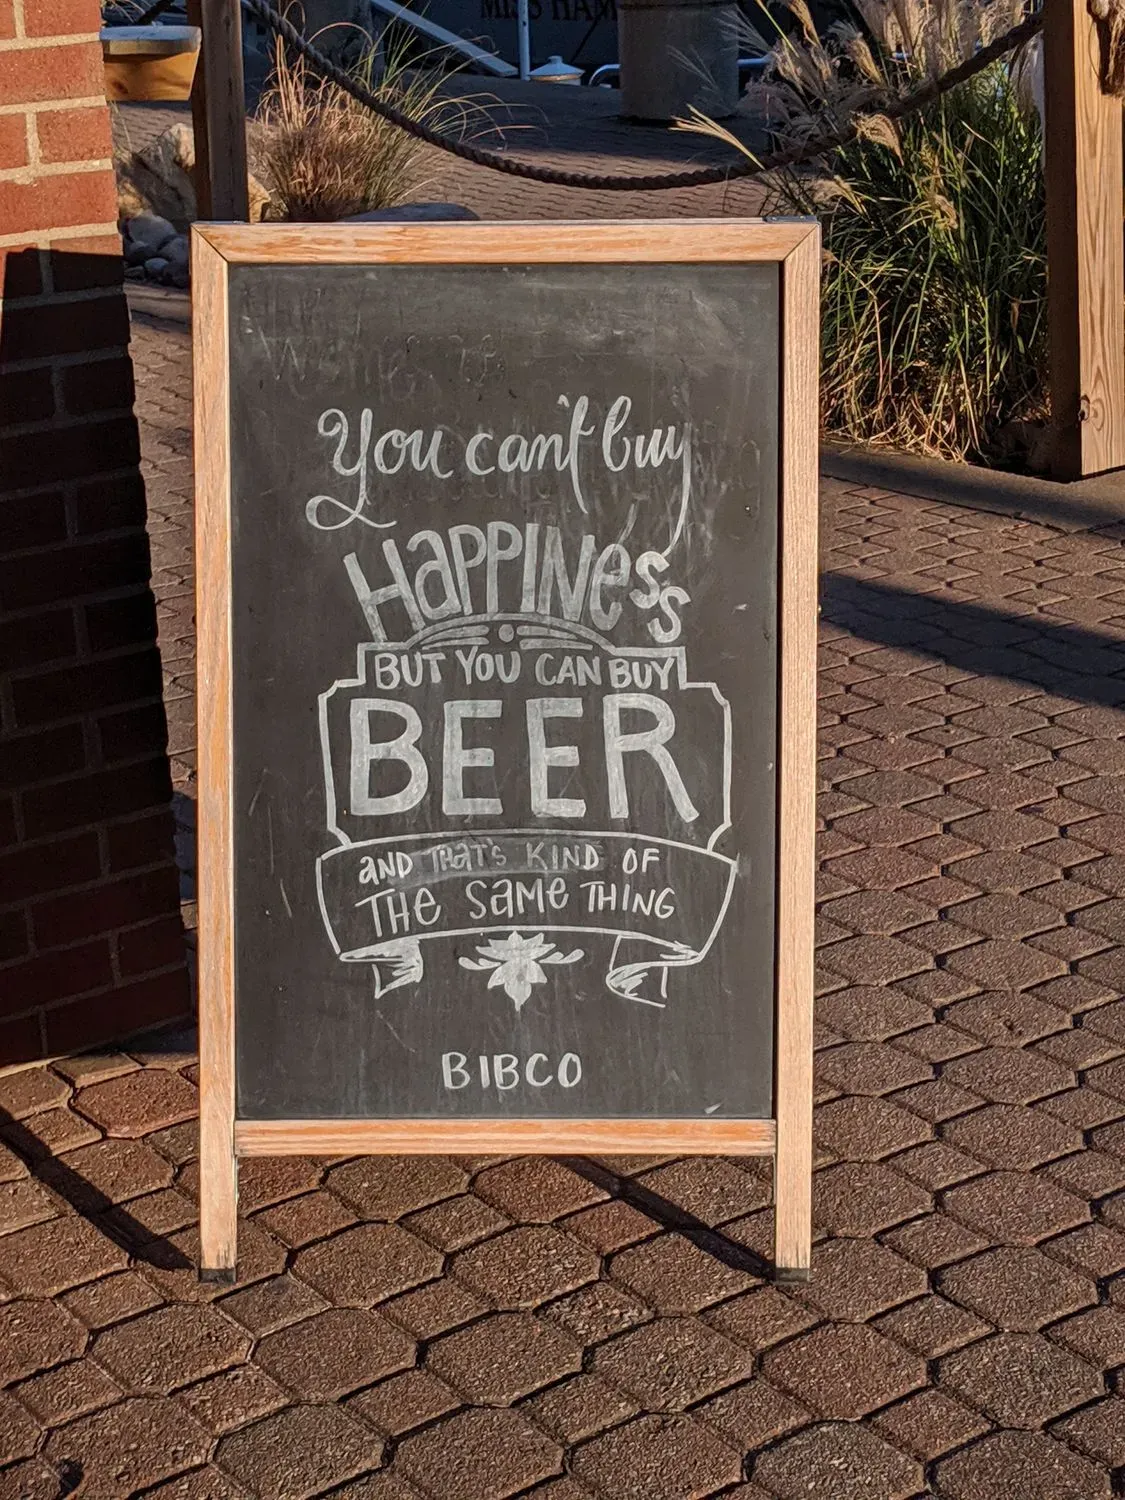 MISS HAM
You can't buy
HAPPINESS
BUT YOU CAN BUY
BEER
AND THAT'S KIND OF
THE SAME THING
BIBCO